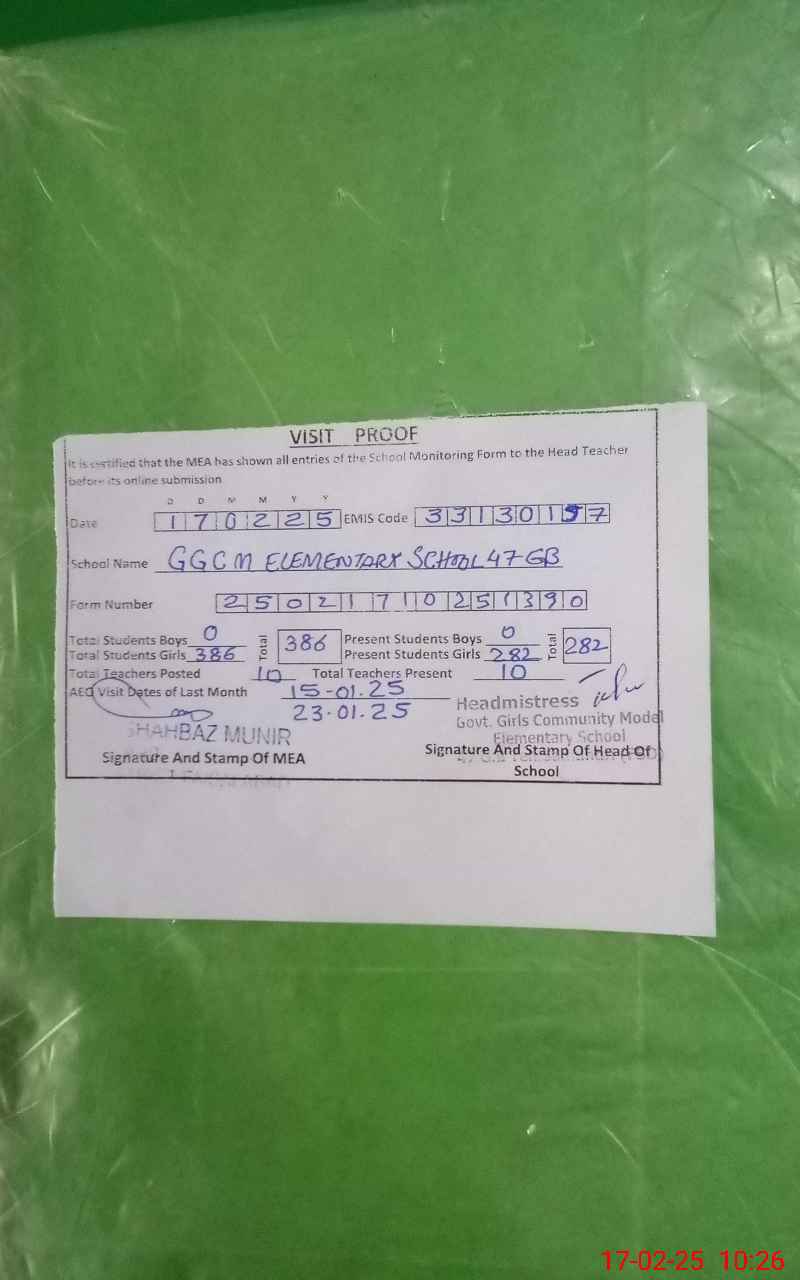 VISIT PROOF
It is certified that the MEA has shown all entries of the School Monitoring Form to the Head Teacher
before its online submission
D D M M Y Y
Date 170225 EMIS Code 33130157
School Name GGCM ELEMENTARY SCHOOL 47 GB
Form Number 25021710251390
Total Students Boys 0 Total 386 Present Students Boys 0 Total 282
Total Students Girls 386 Present Students Girls 282
Total Teachers Posted 10 Total Teachers Present 10
AEO Visit Dates of Last Month 15-01.25
23.01.25
Headmistress
Govt. Girls Community Model
Elementary School
SHAHBAZ MUNIR
Signature And Stamp Of MEA
Signature And Stamp Of Head Of
School
17-02-25 10:26